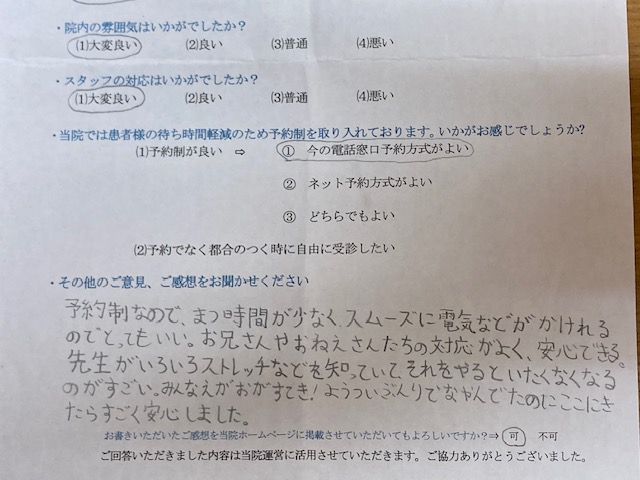 ・院内の雰囲気はいかがでしたか?
(1)大変良い (2)良い (3)普通 (4)悪い
・スタッフの対応はいかがでしたか?
(1)大変良い (2)良い (3)普通 (4)悪い
・当院では患者様の待ち時間軽減のため予約制を取り入れております。いかがお感じでしょうか?
(1)予約制が良い ⇨ ① 今の電話窓口予約方式がよい
② ネット予約方式がよい
③ どちらでもよい
(2)予約でなく都合のつく時に自由に受診したい
・その他のご意見、ご感想をお聞かせください
予約制なので、まつ時間が少なく、スムーズに電気などがかけれる
のでとってもいい。お兄さんやおねえさんたちの対応がよく、安心できる。
先生がいろいろストレッチなどを知っていて、それをやるといたくなくなる
のがすごい。みんなえがおがすてき!ようついぶんりでなやんでたのにここにき
たらすごく安心しました。
お書きいただいたご感想を当院ホームページに掲載させていただいてもよろしいですか?⇒ 可 不可
ご回答いただきました内容は当院運営に活用させていただきます。ご協力ありがとうございました。